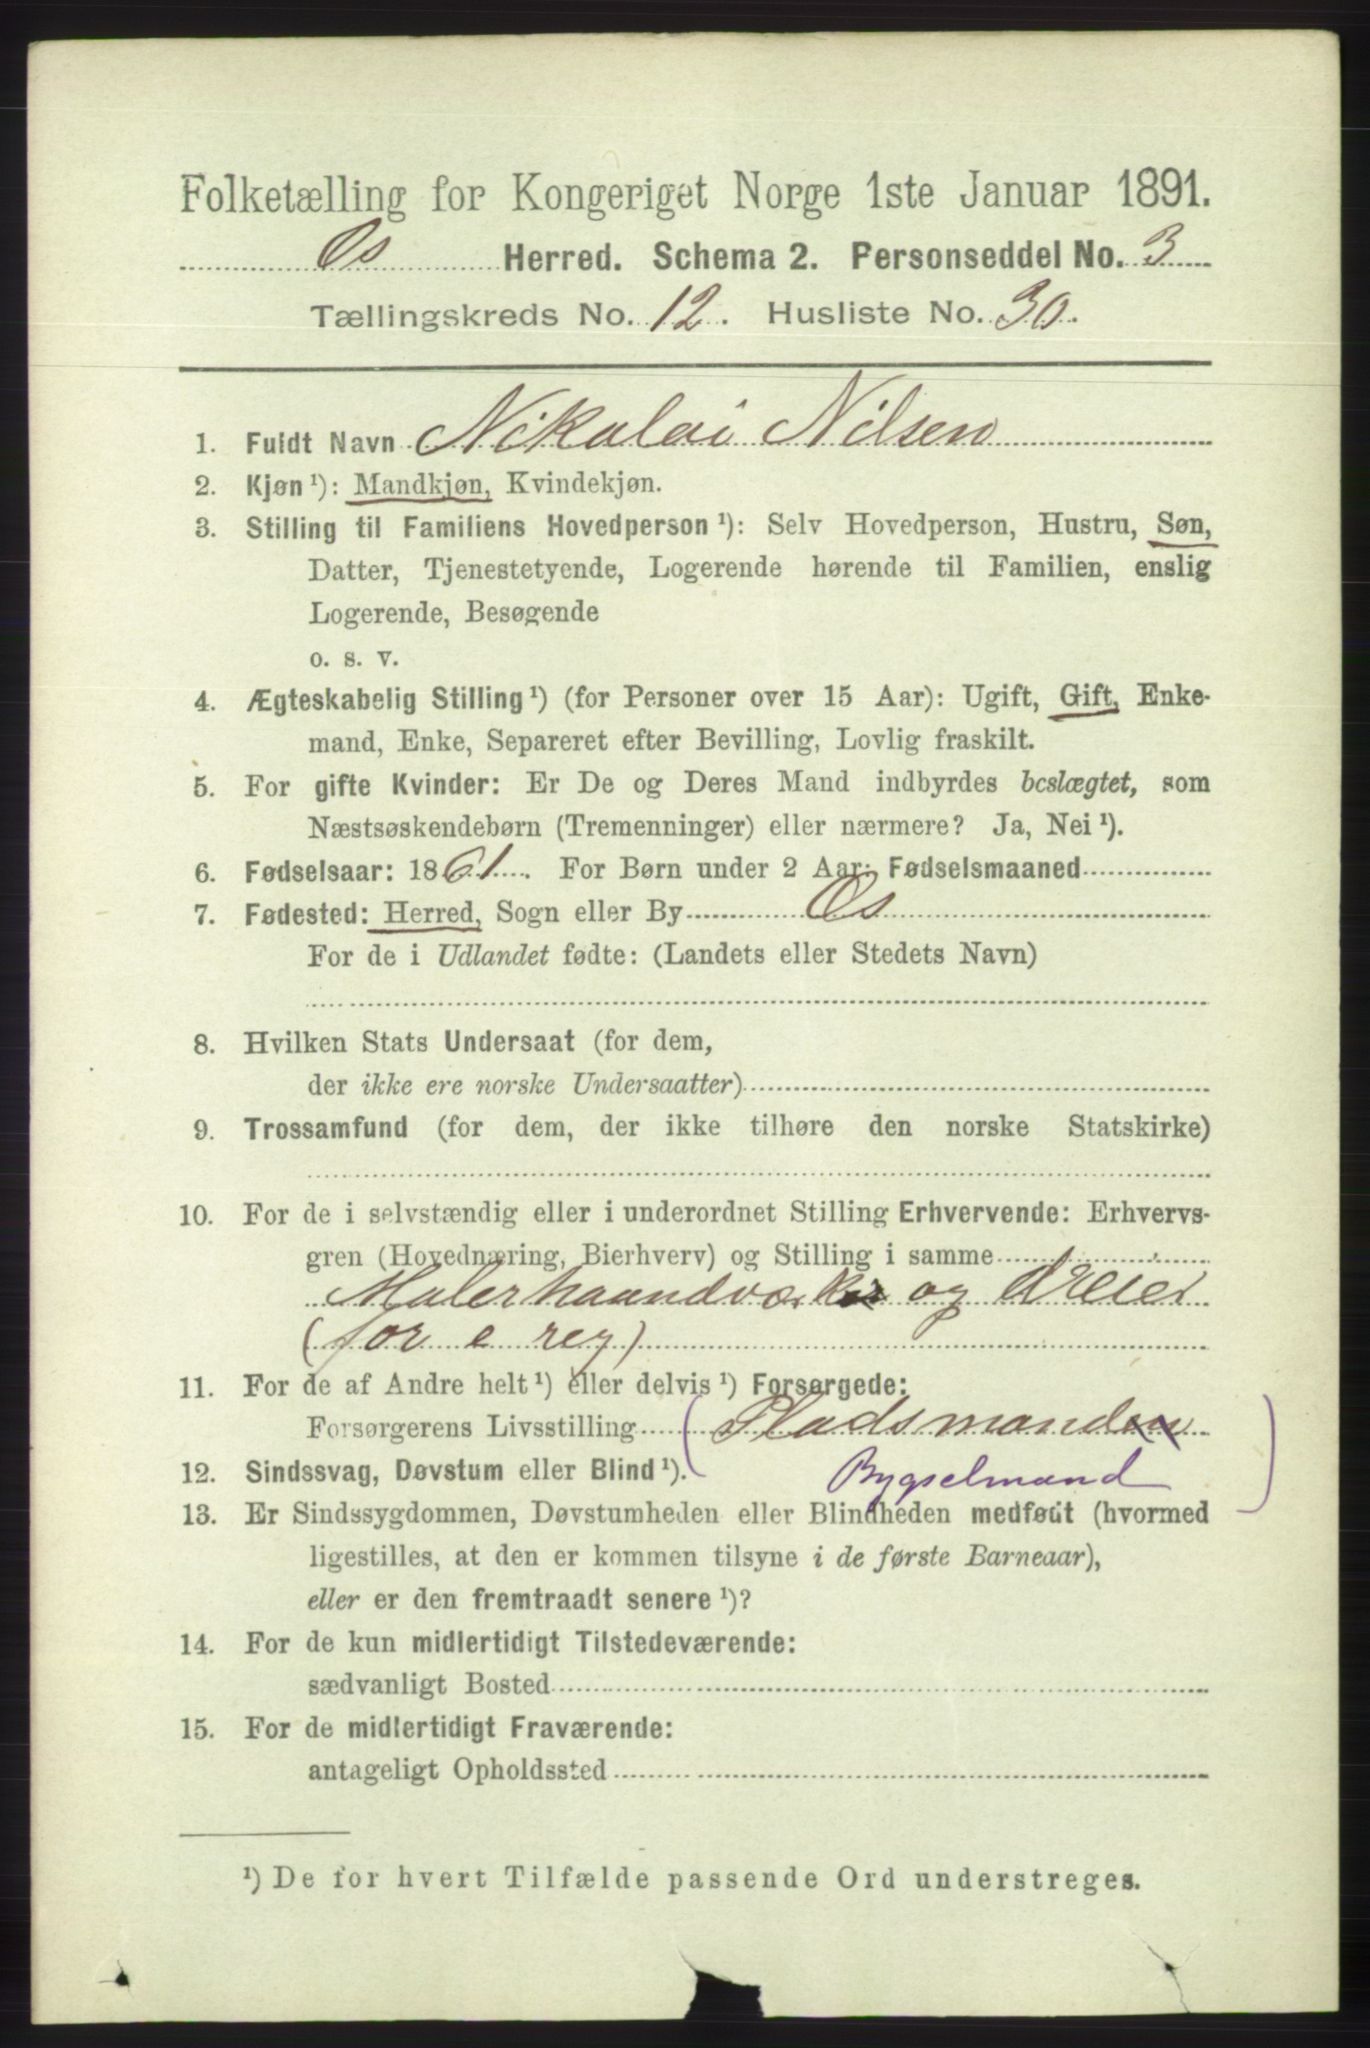 Folketælling for Kongeriget Norge 1ste Januar 1891.
Os Herred. Schema 2. Personseddel No. 3
Tællingskreds No. 12. Husliste No. 30.
1. Fuldt Navn Nikolai Nilsen
2. Kjøn ¹): Mandkjøn, Kvindekjøn.
3. Stilling til Familiens Hovedperson ¹): Selv Hovedperson, Hustru, Søn,
Datter, Tjenestetyende, Logerende hørende til Familien, enslig
Logerende, Besøgende
o. s. v.
4. Ægteskabelig Stilling ¹) (for Personer over 15 Aar): Ugift, Gift, Enke-
mand, Enke, Separeret efter Bevilling, Lovlig fraskilt.
5. For gifte Kvinder: Er De og Deres Mand indbyrdes beslægtet, som
Næstsøskendebørn (Tremenninger) eller nærmere? Ja, Nei ¹).
6. Fødselsaar: 1861. For Børn under 2 Aar: Fødselsmaaned
7. Fødested: Herred, Sogn eller By Os
For de i Udlandet fødte: (Landets eller Stedets Navn)
8. Hvilken Stats Undersaat (for dem,
der ikke ere norske Undersaatter)
9. Trossamfund (for dem, der ikke tilhøre den norske Statskirke)
10. For de i selvstændig eller i underordnet Stilling Erhvervende: Erhvervs-
gren (Hovednæring, Bierhverv) og Stilling i samme
Malerhaandværker og dreier
(for e reg)
11. For de af Andre helt ¹) eller delvis ¹) Forsørgede:
Forsørgerens Livsstilling (Pladsmanden
12. Sindssvag, Døvstum eller Blind ¹). Bygselmand )
13. Er Sindssygdommen, Døvstumheden eller Blindheden medfødt (hvormed
ligestilles, at den er kommen tilsyne i de første Barneaar),
eller er den fremtraadt senere ¹)?
14. For de kun midlertidigt Tilstedeværende:
sædvanligt Bosted
15. For de midlertidigt Fraværende:
antageligt Opholdssted
¹) De for hvert Tilfælde passende Ord understreges.